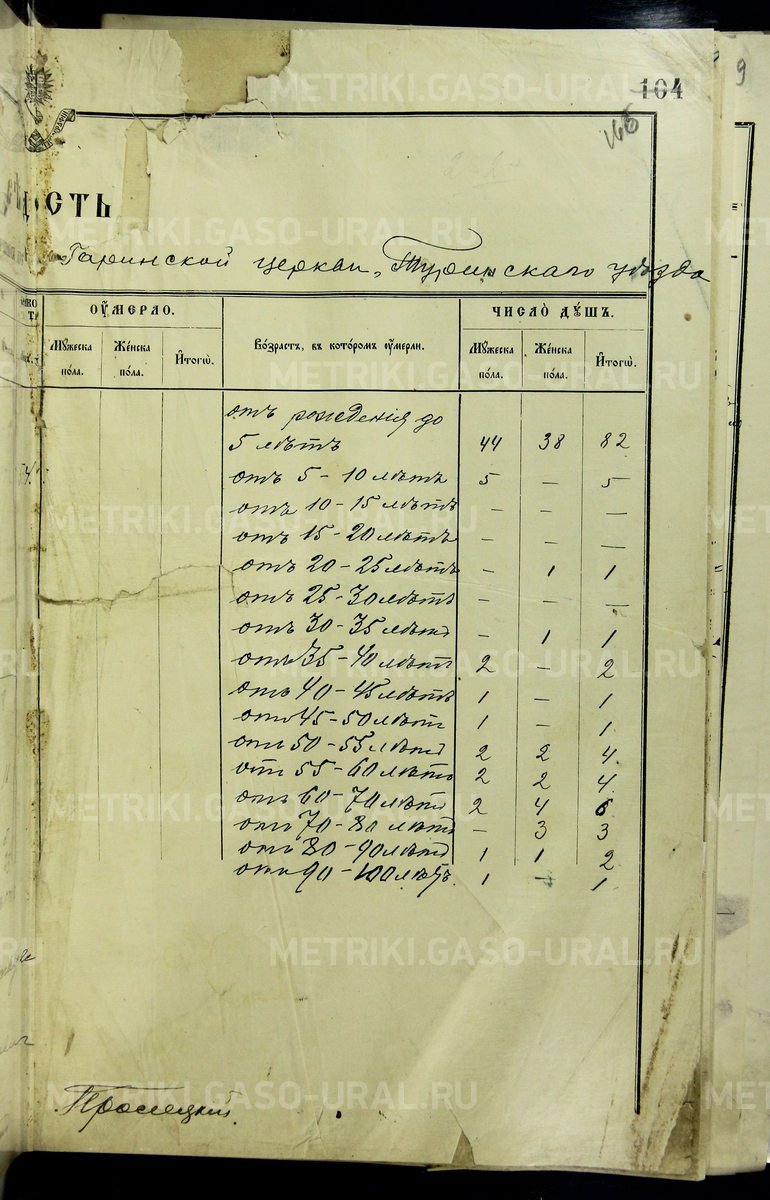 104
9
165
ОСТЬ
Гаринской церкви, Туринскаго уѣзда
ОУМЕРЛО.
ЧИСЛО ДУШЪ.
Мужеска пола.
Женска пола.
Итогѡ.
Возрастъ, въ которомъ оумерли.
Мужеска пола.
Женска пола.
Итогѡ.
отъ рожденія до
5 лѣтъ 44 38 82
отъ 5 - 10 лѣтъ 5 — 5
отъ 10 - 15 лѣтъ — — —
отъ 15 - 20 лѣтъ — — —
отъ 20 - 25 лѣтъ — 1 1
отъ 25 - 30 лѣтъ — — —
отъ 30 - 35 лѣтъ — 1 1
отъ 35 - 40 лѣтъ 2 — 2
отъ 40 - 45 лѣтъ 1 — 1
отъ 45 - 50 лѣтъ 1 — 1
отъ 50 - 55 лѣтъ 2 2 4
отъ 55 - 60 лѣтъ 2 2 4
отъ 60 - 70 лѣтъ 2 4 6
отъ 70 - 80 лѣтъ — 3 3
отъ 80 - 90 лѣтъ 1 1 2
отъ 90 - 100 лѣтъ. 1 — 1
METRIKI.GASO-URAL.RU